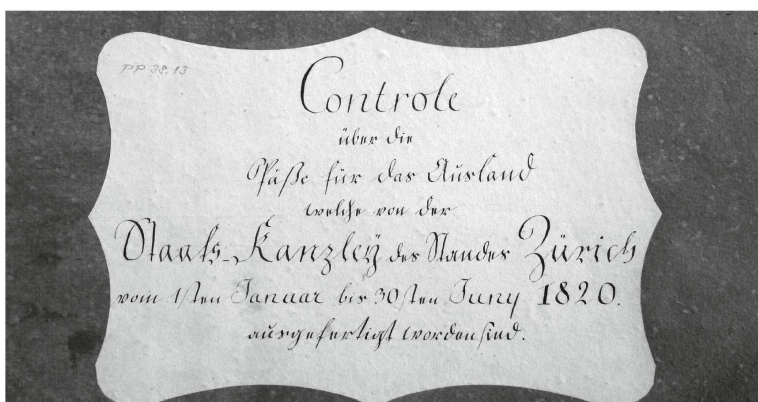 PP 38.13
Controle
über die
Päße für das Ausland
welche von der
Staats-Kanzley des Standes Zürich
vom 1sten Januar bis 30sten Juny 1820.
ausgefertigt worden sind.